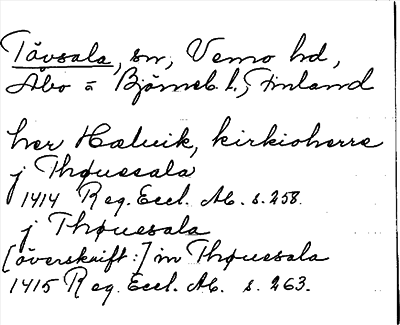 Tövsala, sn, Vemo hd,
Åbo o Björneb. l., Finland
her Hæluik, kirkioherra
j Thøuesala
1414 Reg. Eccl. Ab. s. 258.
j Thøuesala
[överskrift:] in Thøuesala
1415 Reg. Eccl. Ab. s. 263.